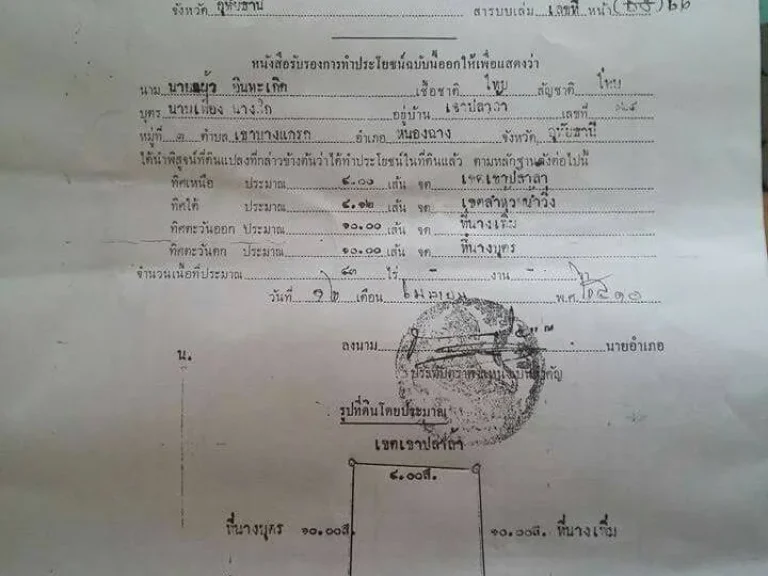 จังหวัด อุทัยธานี สารบบเล่ม เลขที่ หน้า
หนังสือรับรองการทำประโยชน์ฉบับนี้ออกให้เพื่อแสดงว่า
นาม เชื้อชาติ ไทย สัญชาติ ไทย
บุตร นายเฟื่อง อยู่บ้าน เขาปลาล้า เลขที่
หมู่ที่ ๓ ตำบล เขาบางแกรก อำเภอ หนองฉาง จังหวัด อุทัยธานี
ได้นำพิสูจน์ที่ดินแปลงที่กล่าวข้างต้นว่าได้ทำประโยชน์ในที่ดินแล้ว ตามหลักฐานดังต่อไปนี้
ทิศเหนือ ประมาณ ๔.๐๐ เส้น จด เขตเขาปลาล้า
ทิศใต้ ประมาณ ๔.๑๒ เส้น จด
ทิศตะวันออก ประมาณ ๑๐.๐๐ เส้น จด ที่นางเทิ่ม
ทิศตะวันตก ประมาณ ๑๐.๐๐ เส้น จด ที่นางบุตร
จำนวนเนื้อที่ประมาณ ๔๓ ไร่ - งาน -
วันที่ ๑๒ เดือน เมษายน พ.ศ. ๒๕๑๐
ลงนาม นายอำเภอ
น.
รูปที่ดินโดยประมาณ
เขตเขาปลาล้า
๔.๐๐ส.
ที่นางบุตร ๑๐.๐๐ส. ๑๐.๐๐ส. ที่นางเทิ่ม